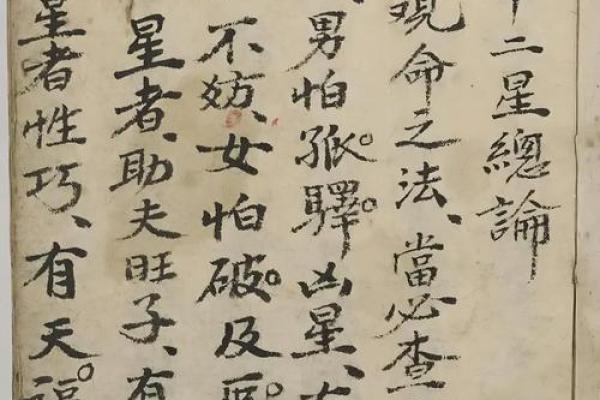 十二星總論
观命之法、當必查
男怕孤。驛。凶星、
不妨、女怕破。及
星者、助夫旺子、有
星者性巧、有天福。